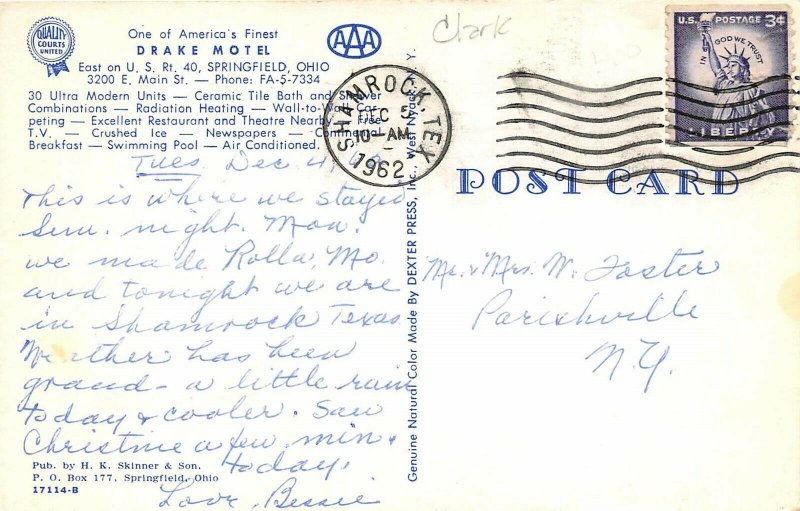 QUALITY
COURTS
UNITED
One of America's Finest
DRAKE MOTEL
East on U. S. Rt. 40, SPRINGFIELD, OHIO
3200 E. Main St. — Phone: FA-5-7334
AAA
30 Ultra Modern Units — Ceramic Tile Bath and Shower
Combinations — Radiation Heating — Wall-to-Wall Car-
peting — Excellent Restaurant and Theatre Nearby — Free
T.V. — Crushed Ice — Newspapers — Continental
Breakfast — Swimming Pool — Air Conditioned.
Tues, Dec 4,
This is where we stayed
Sun. night. Mon.
we made Rolla, Mo.
and tonight we are
in Shamrock Texas
Weather has been
grand - a little rain
today & cooler. Saw
Christine a few min.
today.
Love, Bessie
Pub. by H. K. Skinner & Son,
P. O. Box 177, Springfield, Ohio
17114-B
Genuine Natural Color Made by DEXTER PRESS, Inc., West Nyack, N. Y.
Clark
SHAMROCK, TEX
DEC 5
10-AM
1962
U.S. POSTAGE 3¢
IN GOD WE TRUST
LIBERTY
POST CARD
Mr. & Mrs. W. Foster
Parishville
N.Y.